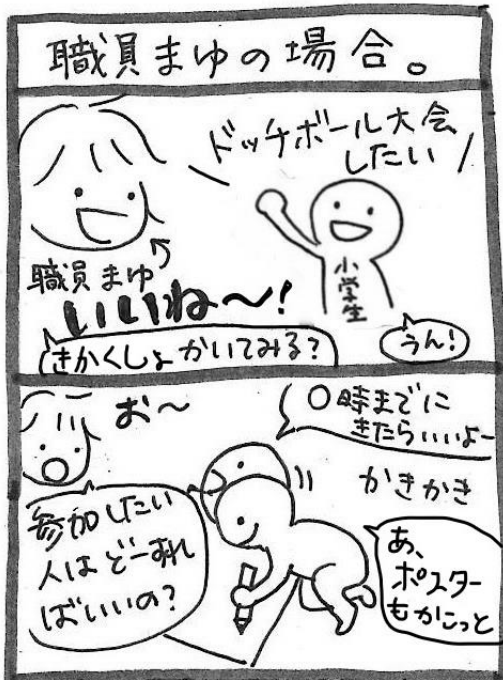 職員まゆの場合。
ドッチボール大会
したい
小学生
職員まゆ
いいね〜!
きかくしょかいてみる?
うん!
お〜
〇時までに
きたらいいよー
かきかき
参加したい
人はどーすれ
ばいいの?
あ、
ポスター
もかこっと